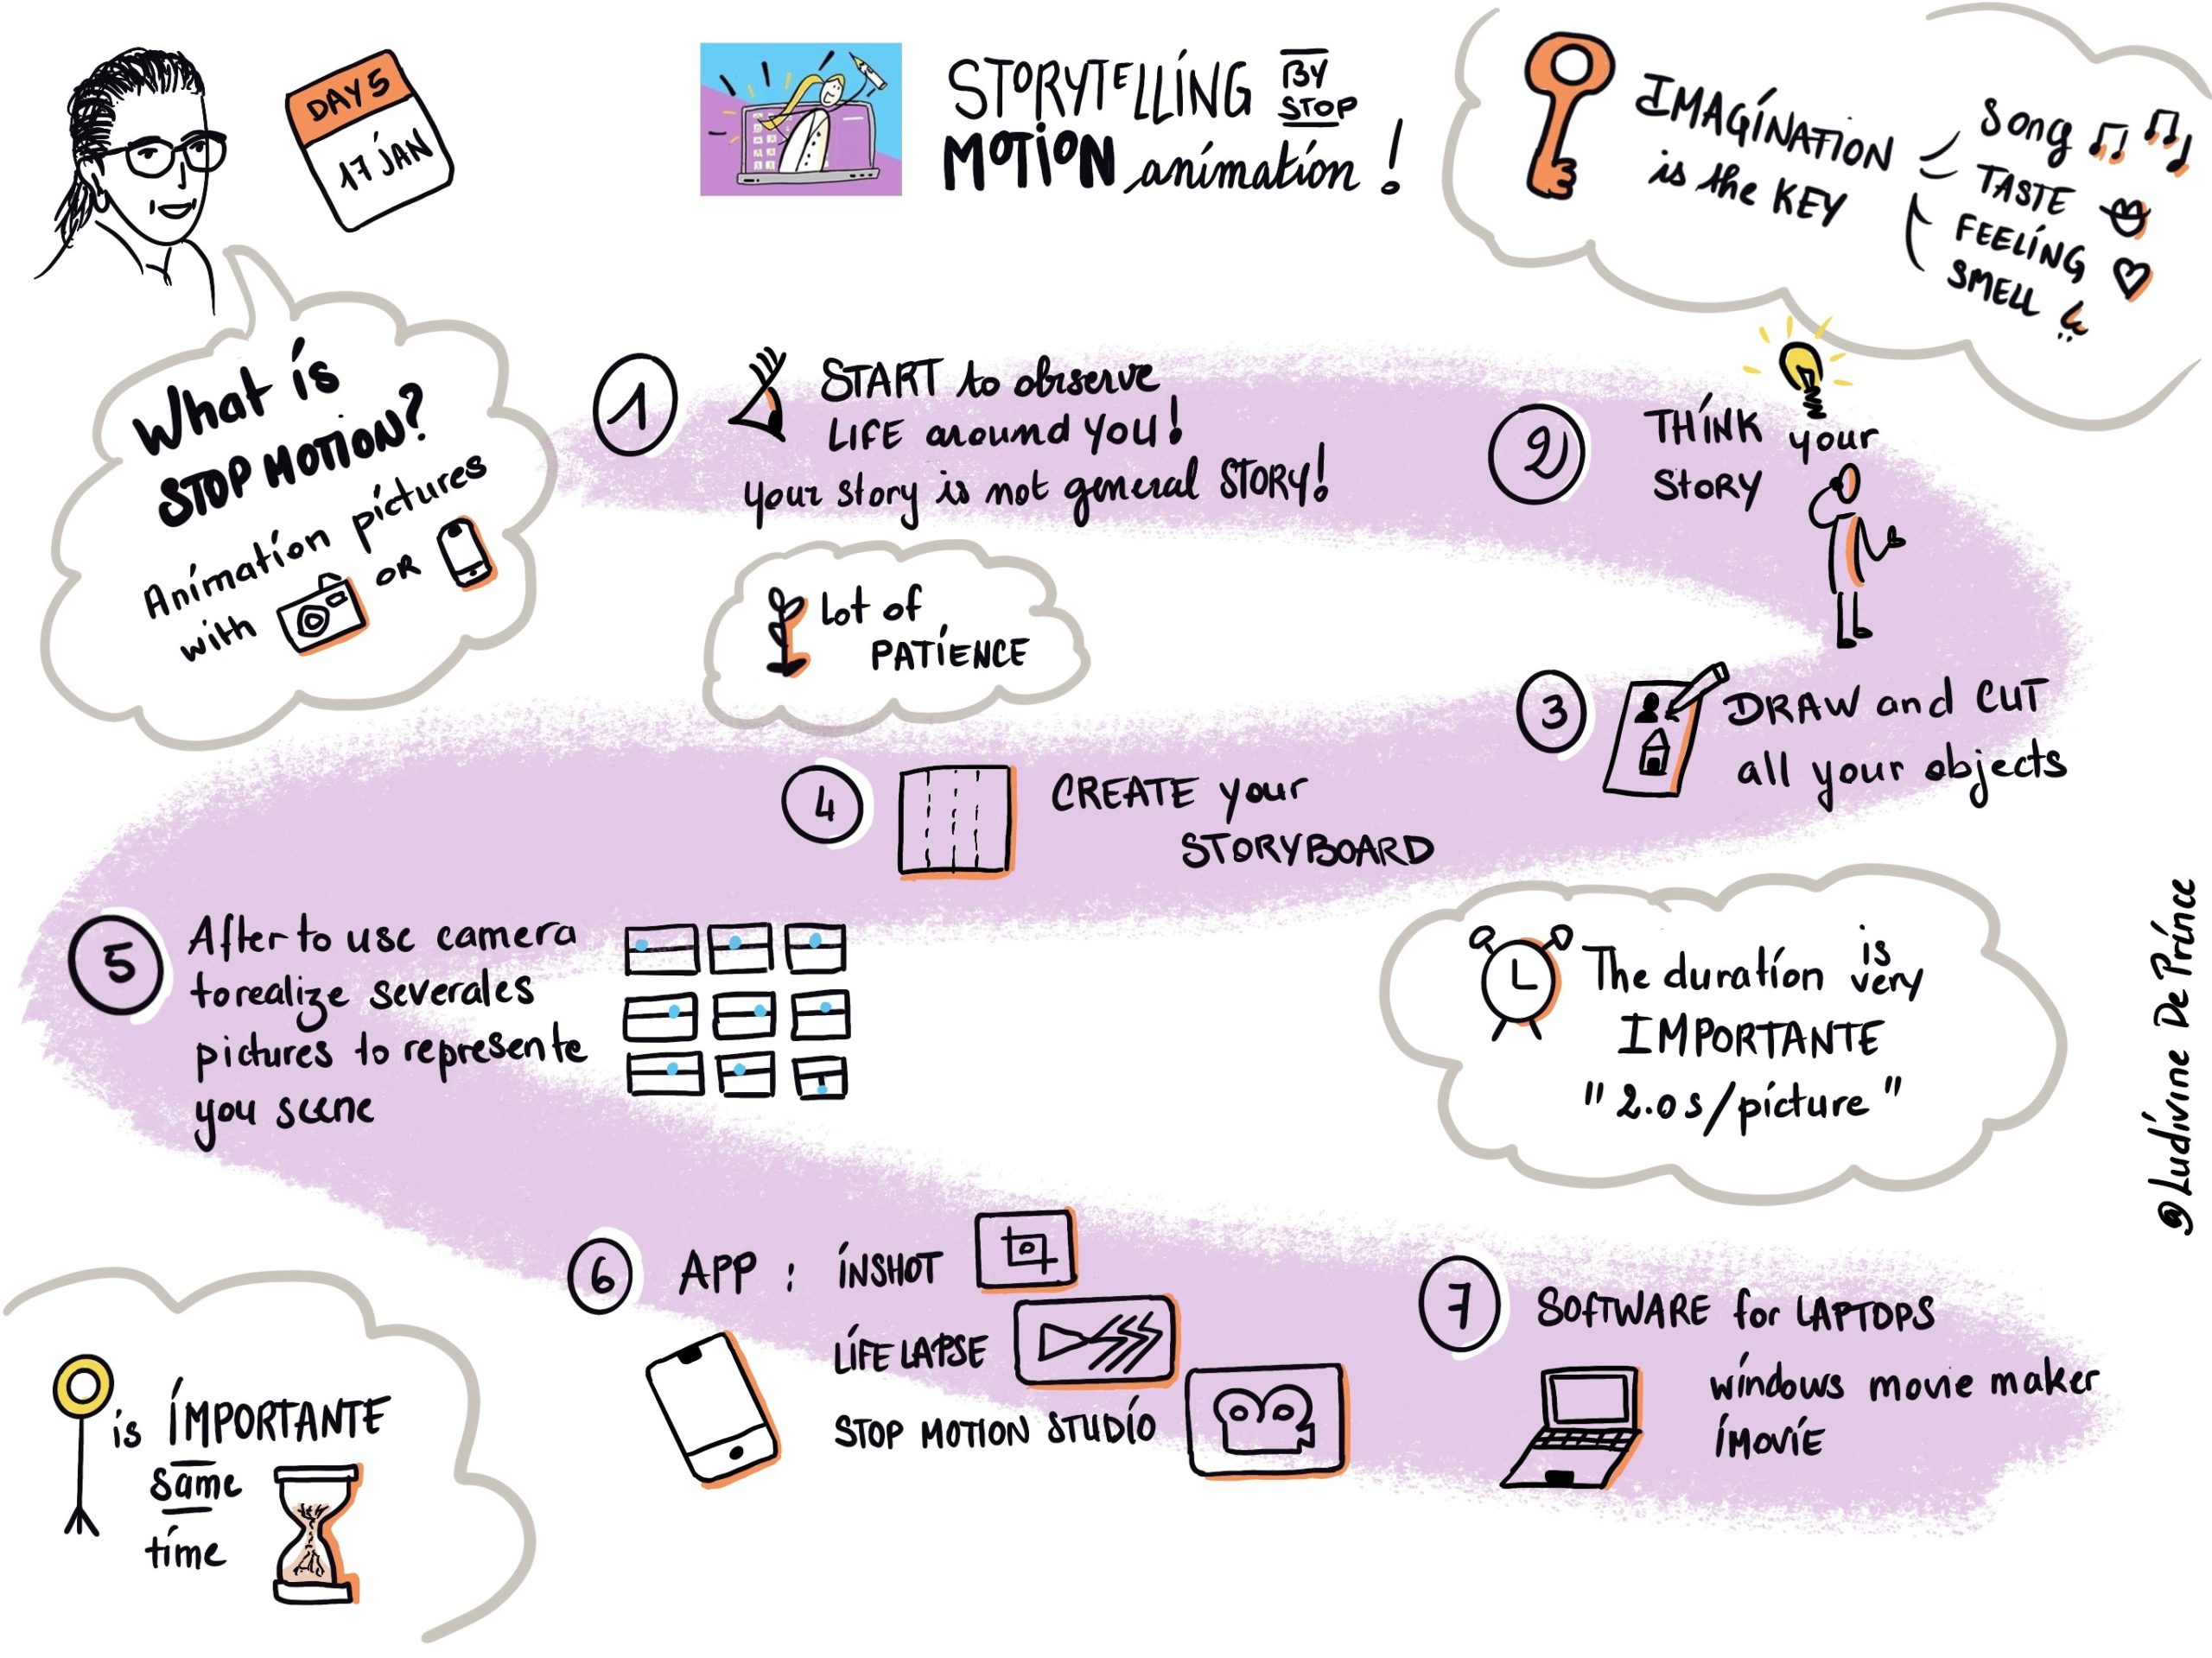 DAY 5
17 JAN
STORYTELLING BY STOP
MOTION animation !
IMAGINATION
is the KEY
Song
TASTE
FEELING
SMELL
What is
STOP MOTION?
Animation pictures
with OR
1
START to observe
LIFE around YOU!
your story is not general STORY!
2
THINK your
STORY
lot of
PATIENCE
3
DRAW and CUT
all your objects
4
CREATE your
STORYBOARD
5
After to use camera
to realize severales
pictures to represente
you scene
The duration is very
IMPORTANTE
"2.0 s/picture"
@Ludivine De Prince
6
APP : INSHOT
LIFE LAPSE
STOP MOTION STUDIO
7
SOFTWARE for LAPTOPS
windows movie maker
iMOVIE
is IMPORTANTE
same
time